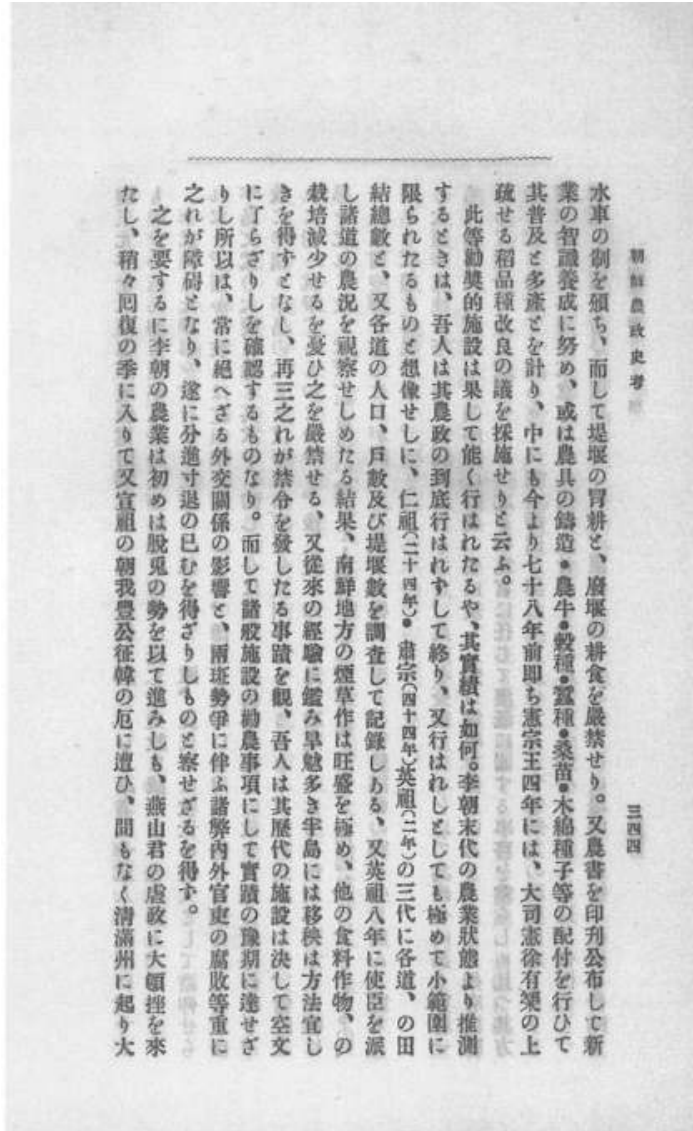 朝鮮農政史考
三四四
水車の制を頒ち、而して堤堰の冒耕と、廢堰の耕食を嚴禁せり。又農書を印刊公布して新
業の智識養成に努め、或は農具の鑄造・農牛・穀種・蠶種・桑苗・木綿種子等の配付を行ひて
其普及と多產とを計り、中にも今より七十八年前即ち憲宗王四年には、大司憲徐有榘の上
疏せる稻品種改良の議を採施せりと云ふ。
此等勸奬的施設は果して能く行はれたるや、其實績は如何。李朝末代の農業狀態より推測
するときは、吾人は其農政の到底行はれずして終り、又行はれしとしても極めて小範圍に
限られたるものと想像せしに、仁祖(二十四年)・肅宗(四十四年)英祖(二年)の三代に各道、の田
結總數と、又各道の人口、戶數及び堤堰數を調査して記錄しある、又英祖八年に使臣を派
し諸道の農況を視察せしめたる結果、南鮮地方の煙草作は旺盛を極め、他の食料作物、の
栽培減少せるを憂ひ之を嚴禁せる、又從來の經驗に鑑み旱魃多き半島には移秧は方法宜し
きを得すとなし、再三之れが禁令を發したる事蹟を觀、吾人は其歷代の施設は決して空文
に了らざりしを確認するものなり。而して諸般施設の勸農事項にして實蹟の豫期に達せざ
りし所以は、常に絕へざる外交關係の影響と、兩班勢爭に伴ふ諸弊內外官吏の腐敗等重に
之れが障碍となり、遂に分進寸退の已むを得ざりしものと察せざるを得す。
之を要するに李朝の農業は初めは脫兎の勢を以て進みしも、燕山君の虐政に大頓挫を來
たし、稍々囘復の季に入りて又宣祖の朝我豐公征韓の厄に遭ひ、間もなく淸滿州に起り大